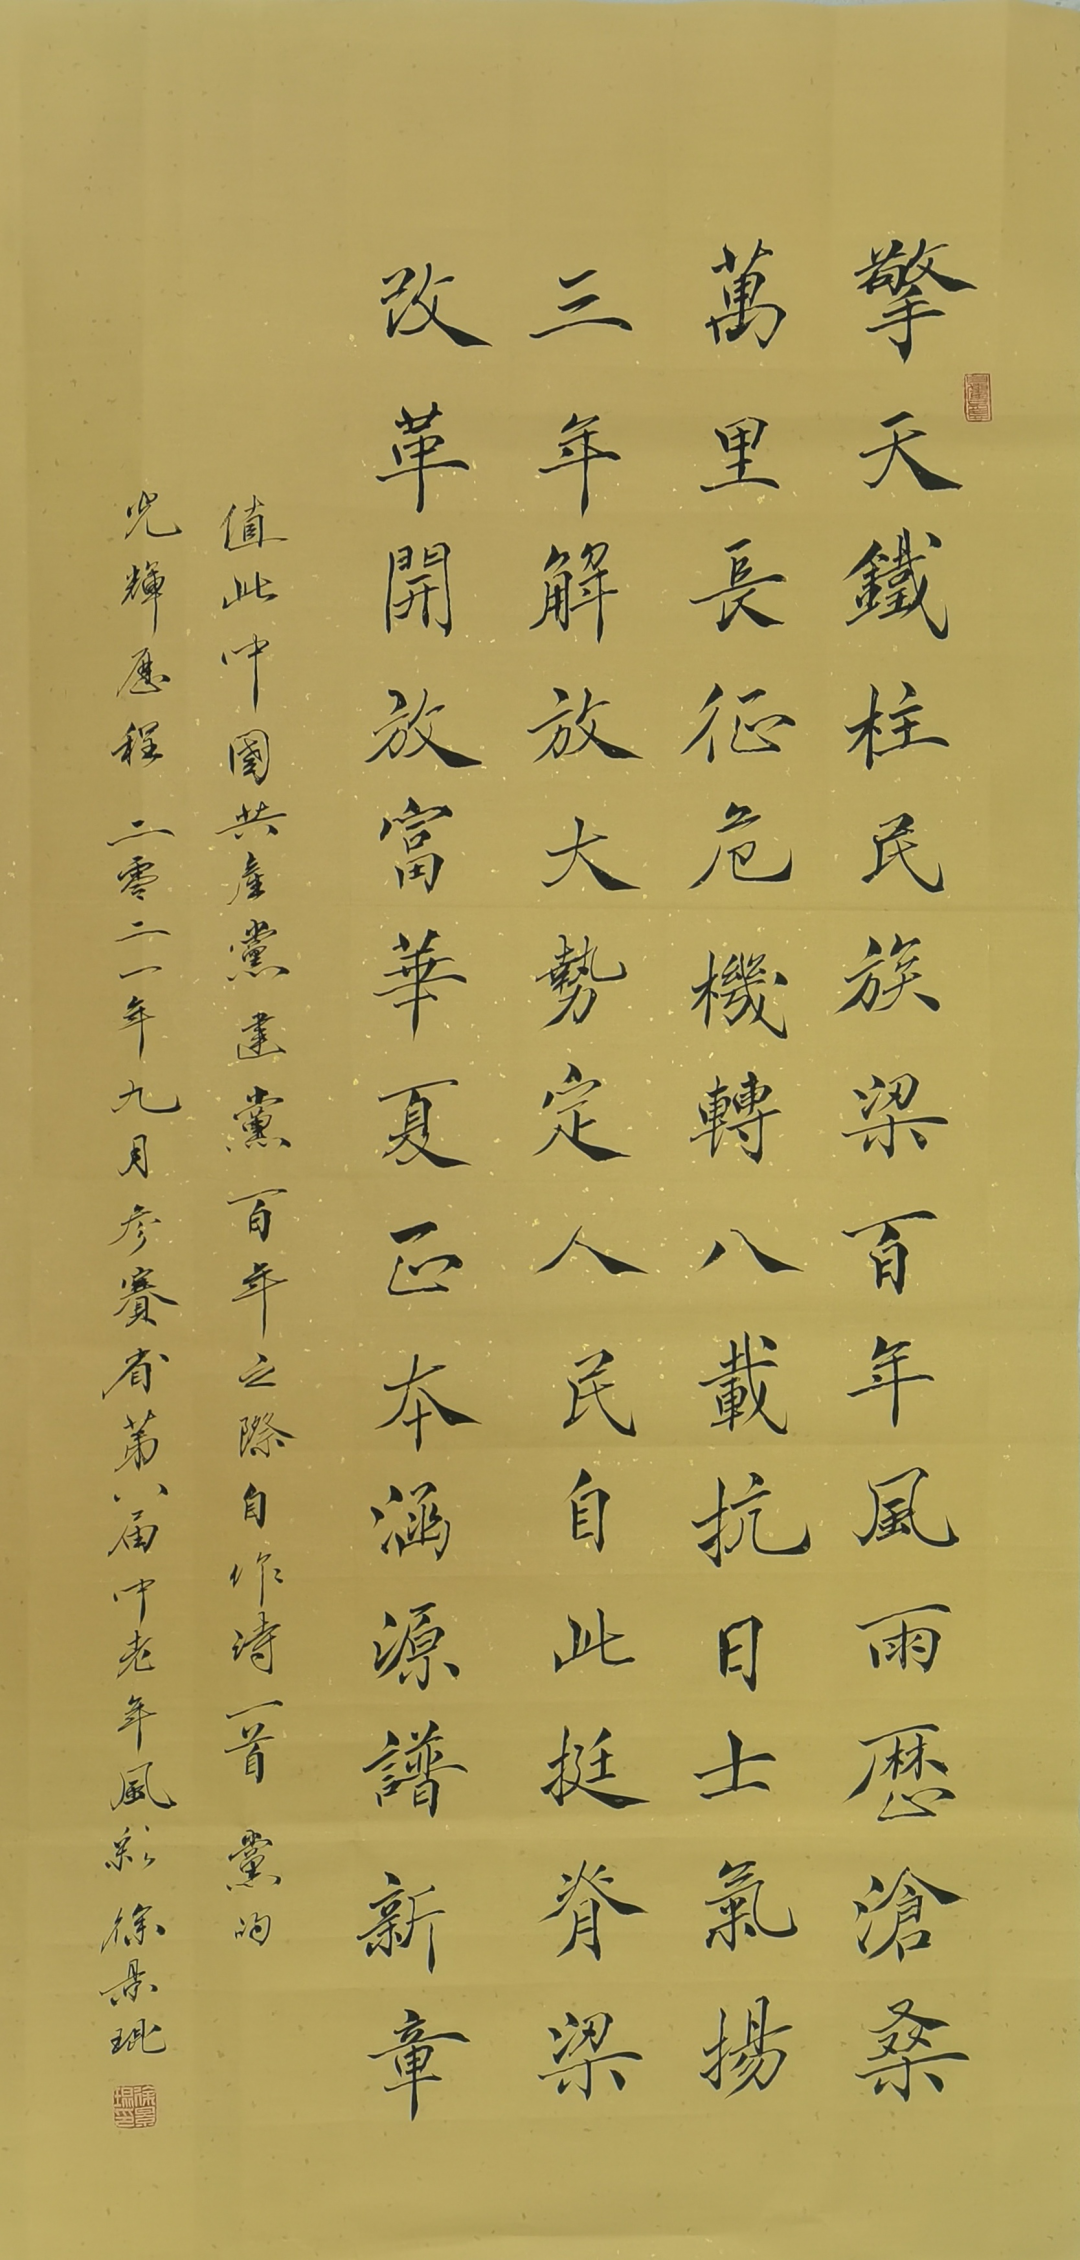 擎天鐵柱民族梁百年風雨歷滄桑
萬里長征危機轉八載抗日士氣揚
三年解放大勢定人民自此挺脊梁
改革開放富華夏正本涵源譜新章
值此中國共產黨建黨百年之際自作诗一首 黨的
光輝歷程 二零二一年九月参賽省第八届中老年風彩 徐景琨